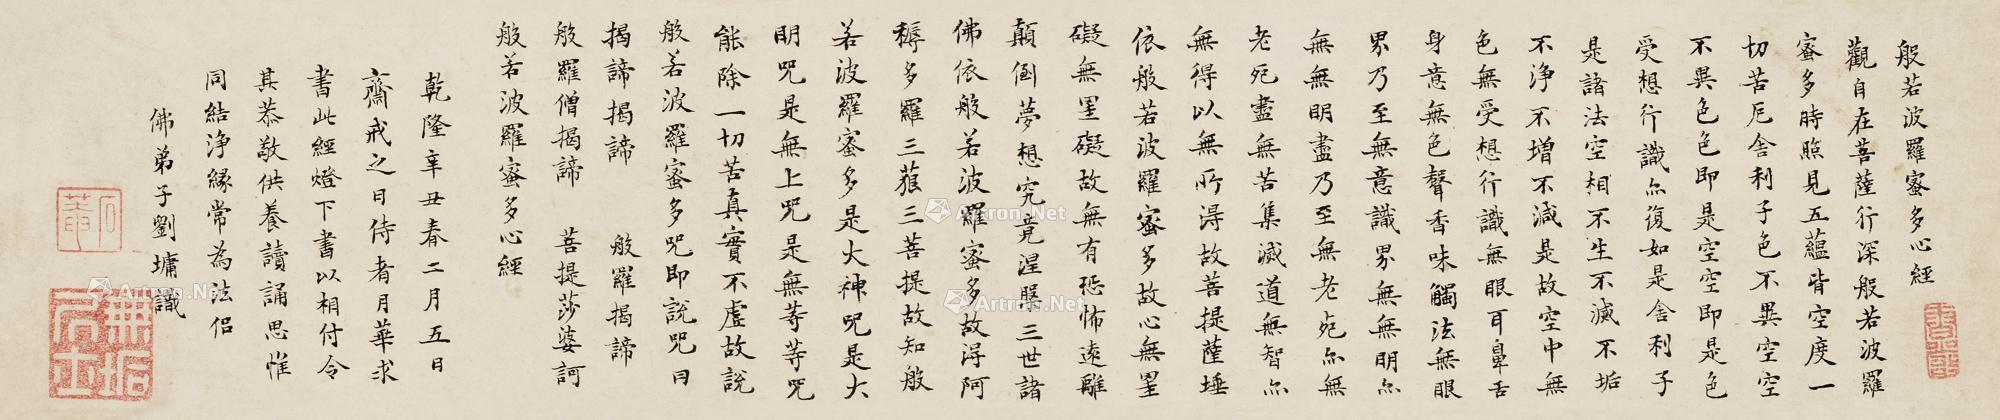 般若波羅蜜多心經
觀自在菩薩行深般若波羅
蜜多時照見五蘊皆空度一
切苦厄舍利子色不異空空
不異色色即是空空即是色
受想行識尒復如是舍利子
是諸法空相不生不滅不垢
不淨不增不減是故空中無
色無受想行識無眼耳鼻舌
身意無色聲香味觸法無眼
界乃至無意識界無無明尒
無無明盡乃至無老死尒無
老死盡無苦集滅道無智尒
無得以無所得故菩提薩埵
依般若波羅蜜多故心無罣
礙無罣礙故無有恐怖遠離
顛倒夢想究竟涅槃三世諸
佛依般若波羅蜜多故得阿
耨多羅三藐三菩提故知般
若波羅蜜多是大神咒是大
明咒是無上咒是無等等咒
能除一切苦真實不虛故說
般若波羅蜜多咒即說咒曰
揭諦揭諦 般羅揭諦
般羅僧揭諦 菩提莎婆訶
般若波羅蜜多心經
乾隆辛丑春二月五日
齋戒之日侍者月華求
書此經燈下書以相付令
其恭敬供養讀誦思惟
同結淨緣常為法侶
佛弟子劉墉識
石菴
Artron.Net
Artron.Net
Artron.Net
Artron.Net